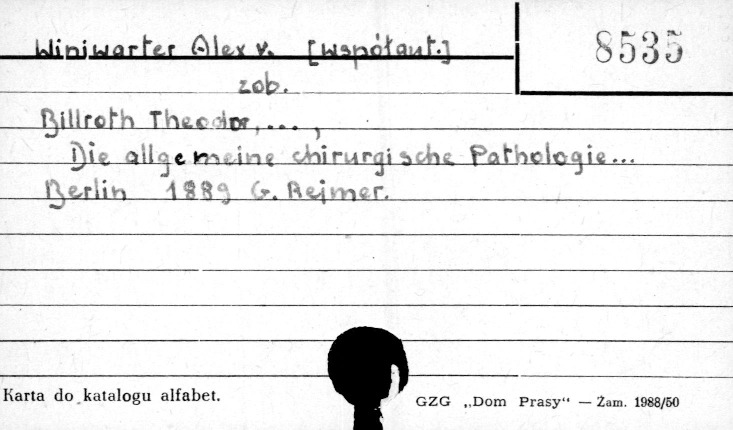 Winiwarter Alex v. [współaut.]
8535
zob.
Billroth Theodor, ... ,
Die allgemeine chirurgische Pathologie...
Berlin 1889 G. Rejmer.
Karta do katalogu alfabet.
GZG „Dom Prasy“ — Zam. 1988/50